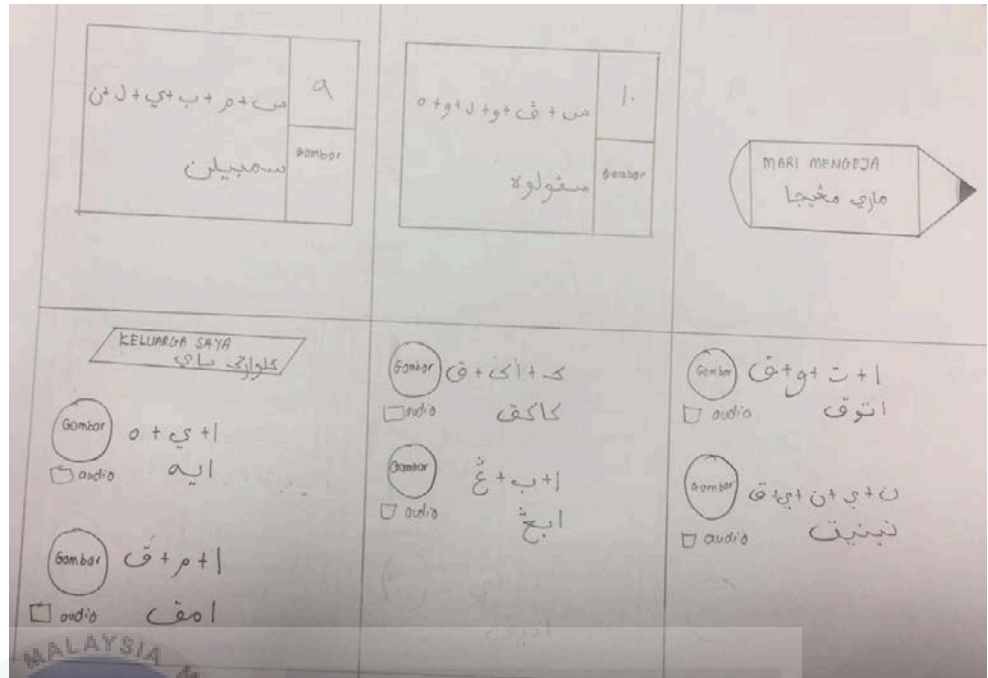 ٩
س+م+ب+ي+ل+ن
Gambar
سمبيلن
١٠
س+ڤ+و+ل+و+ه
Gambar
سڤولوه
MARI MENGEJA
ماري مڠيجا
KELUARGA SAYA
كلوارݢ ساي
Gambar
ا+ي+ه
audio
ايه
Gambar
ا+م+ق
audio
امق
Gambar
ک+اک+ق
audio
كاكق
Gambar
ا+ب+ڠ
audio
ابڠ
Gambar
ا+ت+و+ق
audio
اتوق
Gambar
ن+ي+ن+ي+ق
audio
MALAYSIA